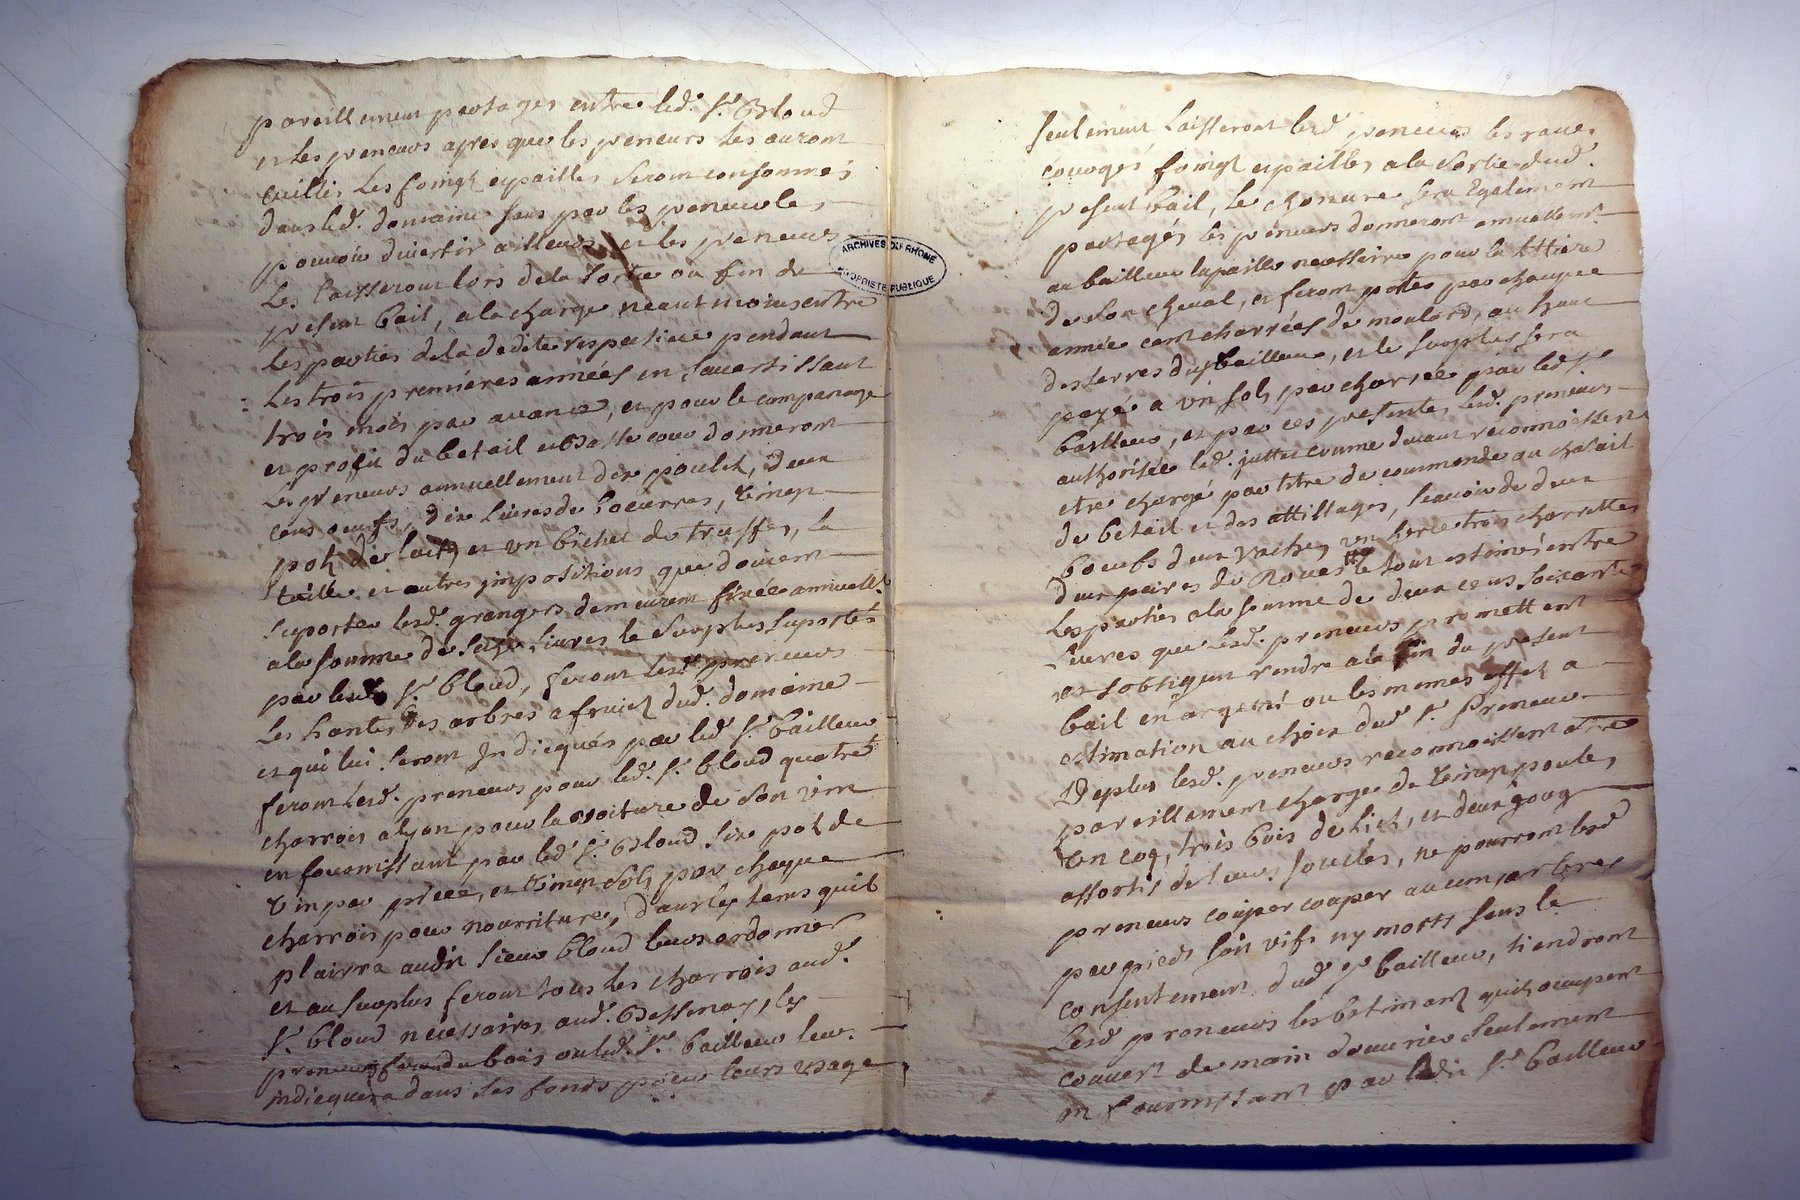 pareillement partages entre led. Sr. Bloud
et les preneurs apres que les preneurs les auront
cuillis, les foingt et pailles seront consommés
dans led. domaine sans par les preneurs les
pouvoir divertir ailleurs, et les preneurs
les laisseront lors de la sortie ou fin de
present bail, a la charge neantmoins entre
les parties de la dedite respective pendant
les trois premieres années en s'avertissant
trois mois par avance, et pour le companage
et profit du betail et basse cour donneront
les preneurs annuellement dix poulet, deux
cens oeufs, dix livres de beurres, vingt
pots de lait, et un bichet de truffes, la
taille et autres impositions que doivent
suporter lesd. grangers demeurent fixée annuell.
a la somme de seize livres le surplus suportés
par led. Sr. bloud, feront lesd. preneurs
les hantes des arbres a fruict dud. domaine
et qui lui seront Indicqués par led. Sr. bailleur
feront lesd. preneurs pour led. Sr. bloud quatre
charrois a lyon pour la voiture de son vin
en fournissant par led. Sr. Bloud six pots de
vin par piece, et vingt sols par chaque
charrois pour nourriture, dans les tems quil
plairra audit sieur bloud leurs ordonner
et au surplus feront tous les charrois aud.
Sr. bloud necessaires aud. Bessenay, les
preneurs feront du bois ou led. Sr. bailleur leur
indicquera dans ses fonds pour leurs usage
ARCHIVES DU RHONE
PROPRIETE PUBLIQUE
seulement laisseront lesd. preneurs les raves
couoges foingt et pailles a la sortie dud.
present bail, le chanvre sera Egalement
partagés les preneurs donneront annuellemt.
au bailleur la paille necessaire pour la littiere
de son cheval, et feront portes par chaque
année cent charrées de moulard, au haut
des terres du bailleur, et le surplus sera
payé a un sols par charrée par led. Sr.
bailleur, et par ces presentes lesd. preneurs
authorisée led. juttet comme devant reconnoissent
etre chargé par titre de commande au chatail
de betail et des attillages, scavoir de deux
boeufs deux vaches, un herse trois charrettes
deux paires de Roues le tout estimés entre
les parties a la somme de deux cens soixante
livres que lesd. preneurs promettent
et sobligent rendre a la fin du present
bail en argent ou les memes effet a
estimation au choix dud. Sr. Preneur
Deplus lesd. preneurs reconnoissent etre
pareillement charges de vingt poules,
un coq, trois bois de lict, et deux goug
assortis de leurs soucles, ne pourront lesd.
preneurs couper couper aucuns arbres
par pieds soit vifs ny morts sans le
consentement dud. Sr. bailleur, tiendront
Lesd. preneurs les batimant quils occupent
couvert de main d'ouvrier seulement
en fournissant par ledit Sr. bailleur